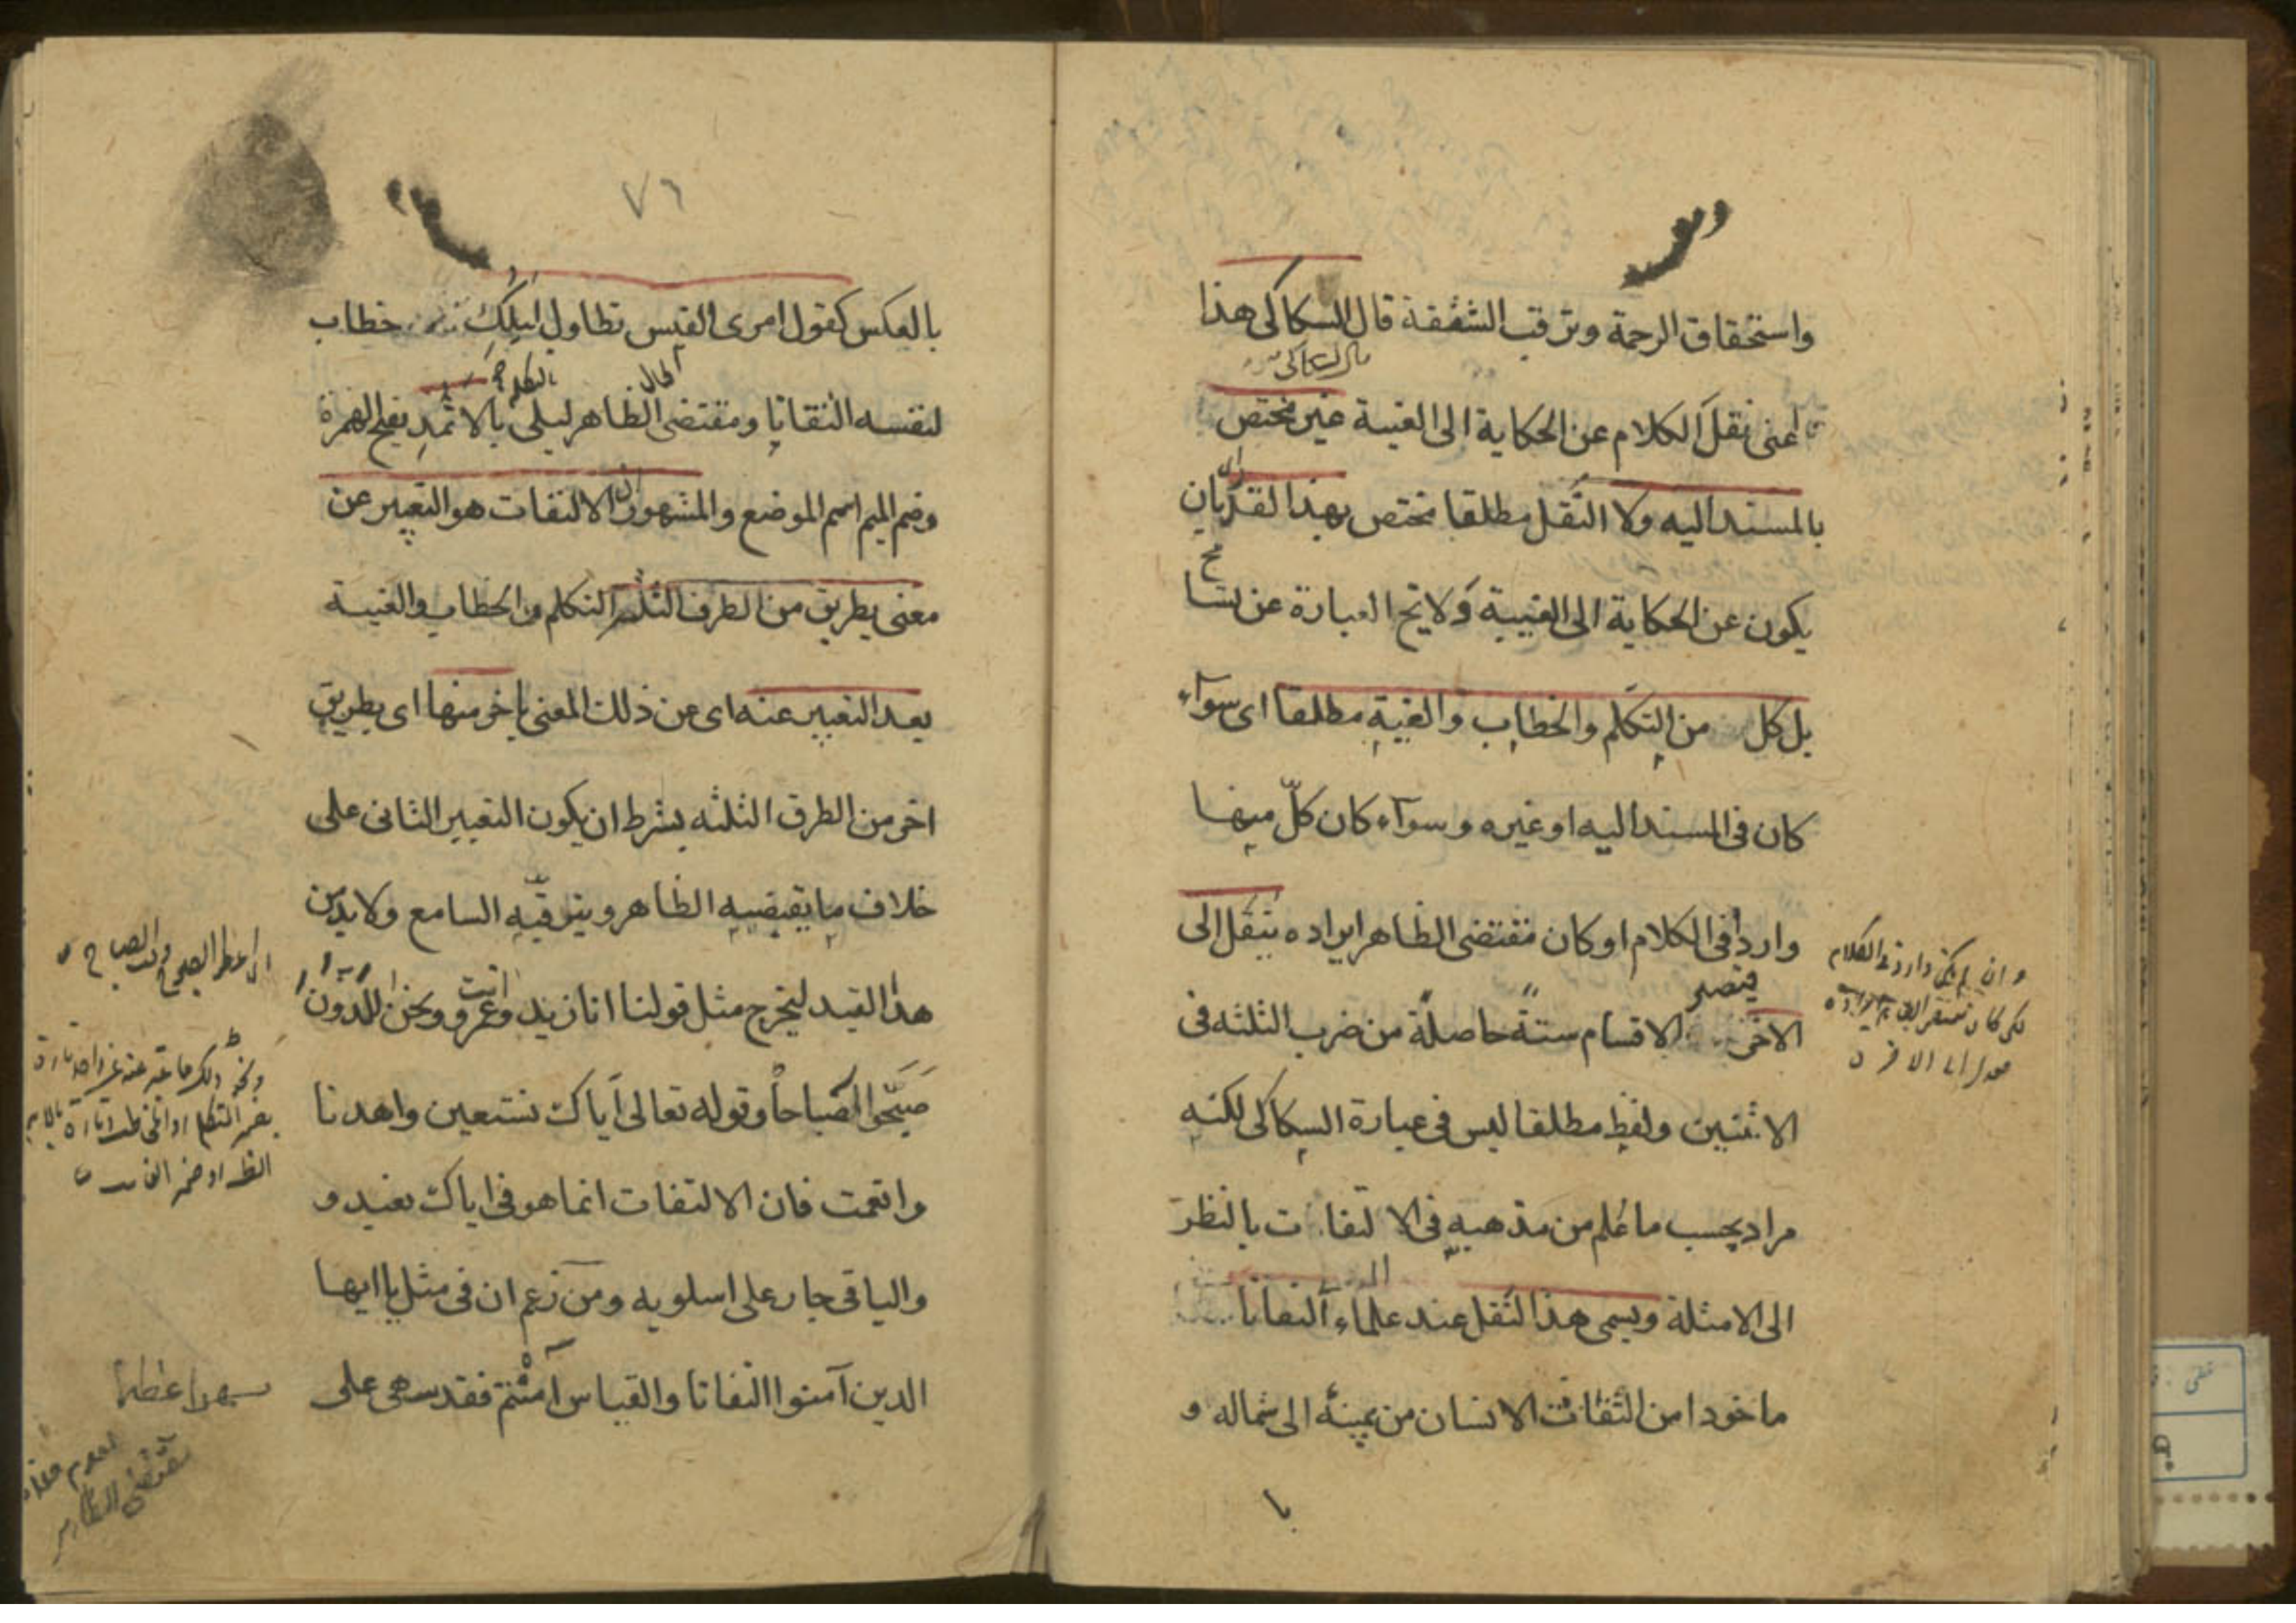 واستحقاق الرحمة وترقب الشفقة قال السكاكى هذا
اعنى نقل الكلام عن الحكاية الى الغيبة غير مختص
بالمسند اليه ولا النقل مطلقا مختص بهذا القدر بان
يكون عن الحكاية الى الغيبة ولا يخ العبارة عن تسا
مح
بل كل من التكلم والخطاب والغيبة مطلقا اى سوآء
كان فى المسند اليه او غيره وسوآء كان كلّ منها
واردا فى الكلام او كان مقتضى الظاهر ايراده ينقل الى
الاخر فيصير الاقسام ستة حاصلة من ضرب الثلثه فى
الاثنين ولفظ مطلقا ليس فى عبارة السكاكى لكنه
مراد بحسب ما علم من مذهبه فى الالتفات بالنظر
الى الامثلة ويسمى هذا النقل عند علماء التفاتا
ماخودا من التفات الانسان من يمينه الى شماله و
وان لم يكن واردا فى الكلام
٧٦
بالعكس كقول امرى القيس تطاول ليلك خطاب
لنفسه التفاتا ومقتضى الظاهر ليلى بالاثمد بفتح الهمزة
الحال
وضم الميم اسم الموضع والمشهور ان الالتفات هو التعبير عن
معنى بطريق من الطرق الثلثه التكلم والخطاب والغيبة
بعد التعبير عنه اى عن ذلك المعنى باخر منها اى بطريق
اخر من الطرق الثلثه بشرط ان يكون التعبير الثانى على
خلاف ما يقيضيه الظاهر ويترقبه السامع ولا بد من
هذا القيد ليخرج مثل قولنا انا زيد وانت عمرو ونحن اللذون
صبّحوا الصباحا وقوله تعالى اياك نستعين واهدنا
وانعمت فان الالتفات انما هو فى اياك نعبد و
والباقى جار على اسلوبه ومن زعم ان فى مثل يا ايها
الدين آمنوا التفاتا والقياس آمنتم فقد سهى على
مقتضى الظاهر